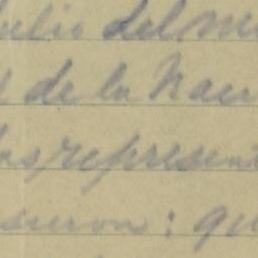 julio del m
de la Nac
las represent
ieron: qu